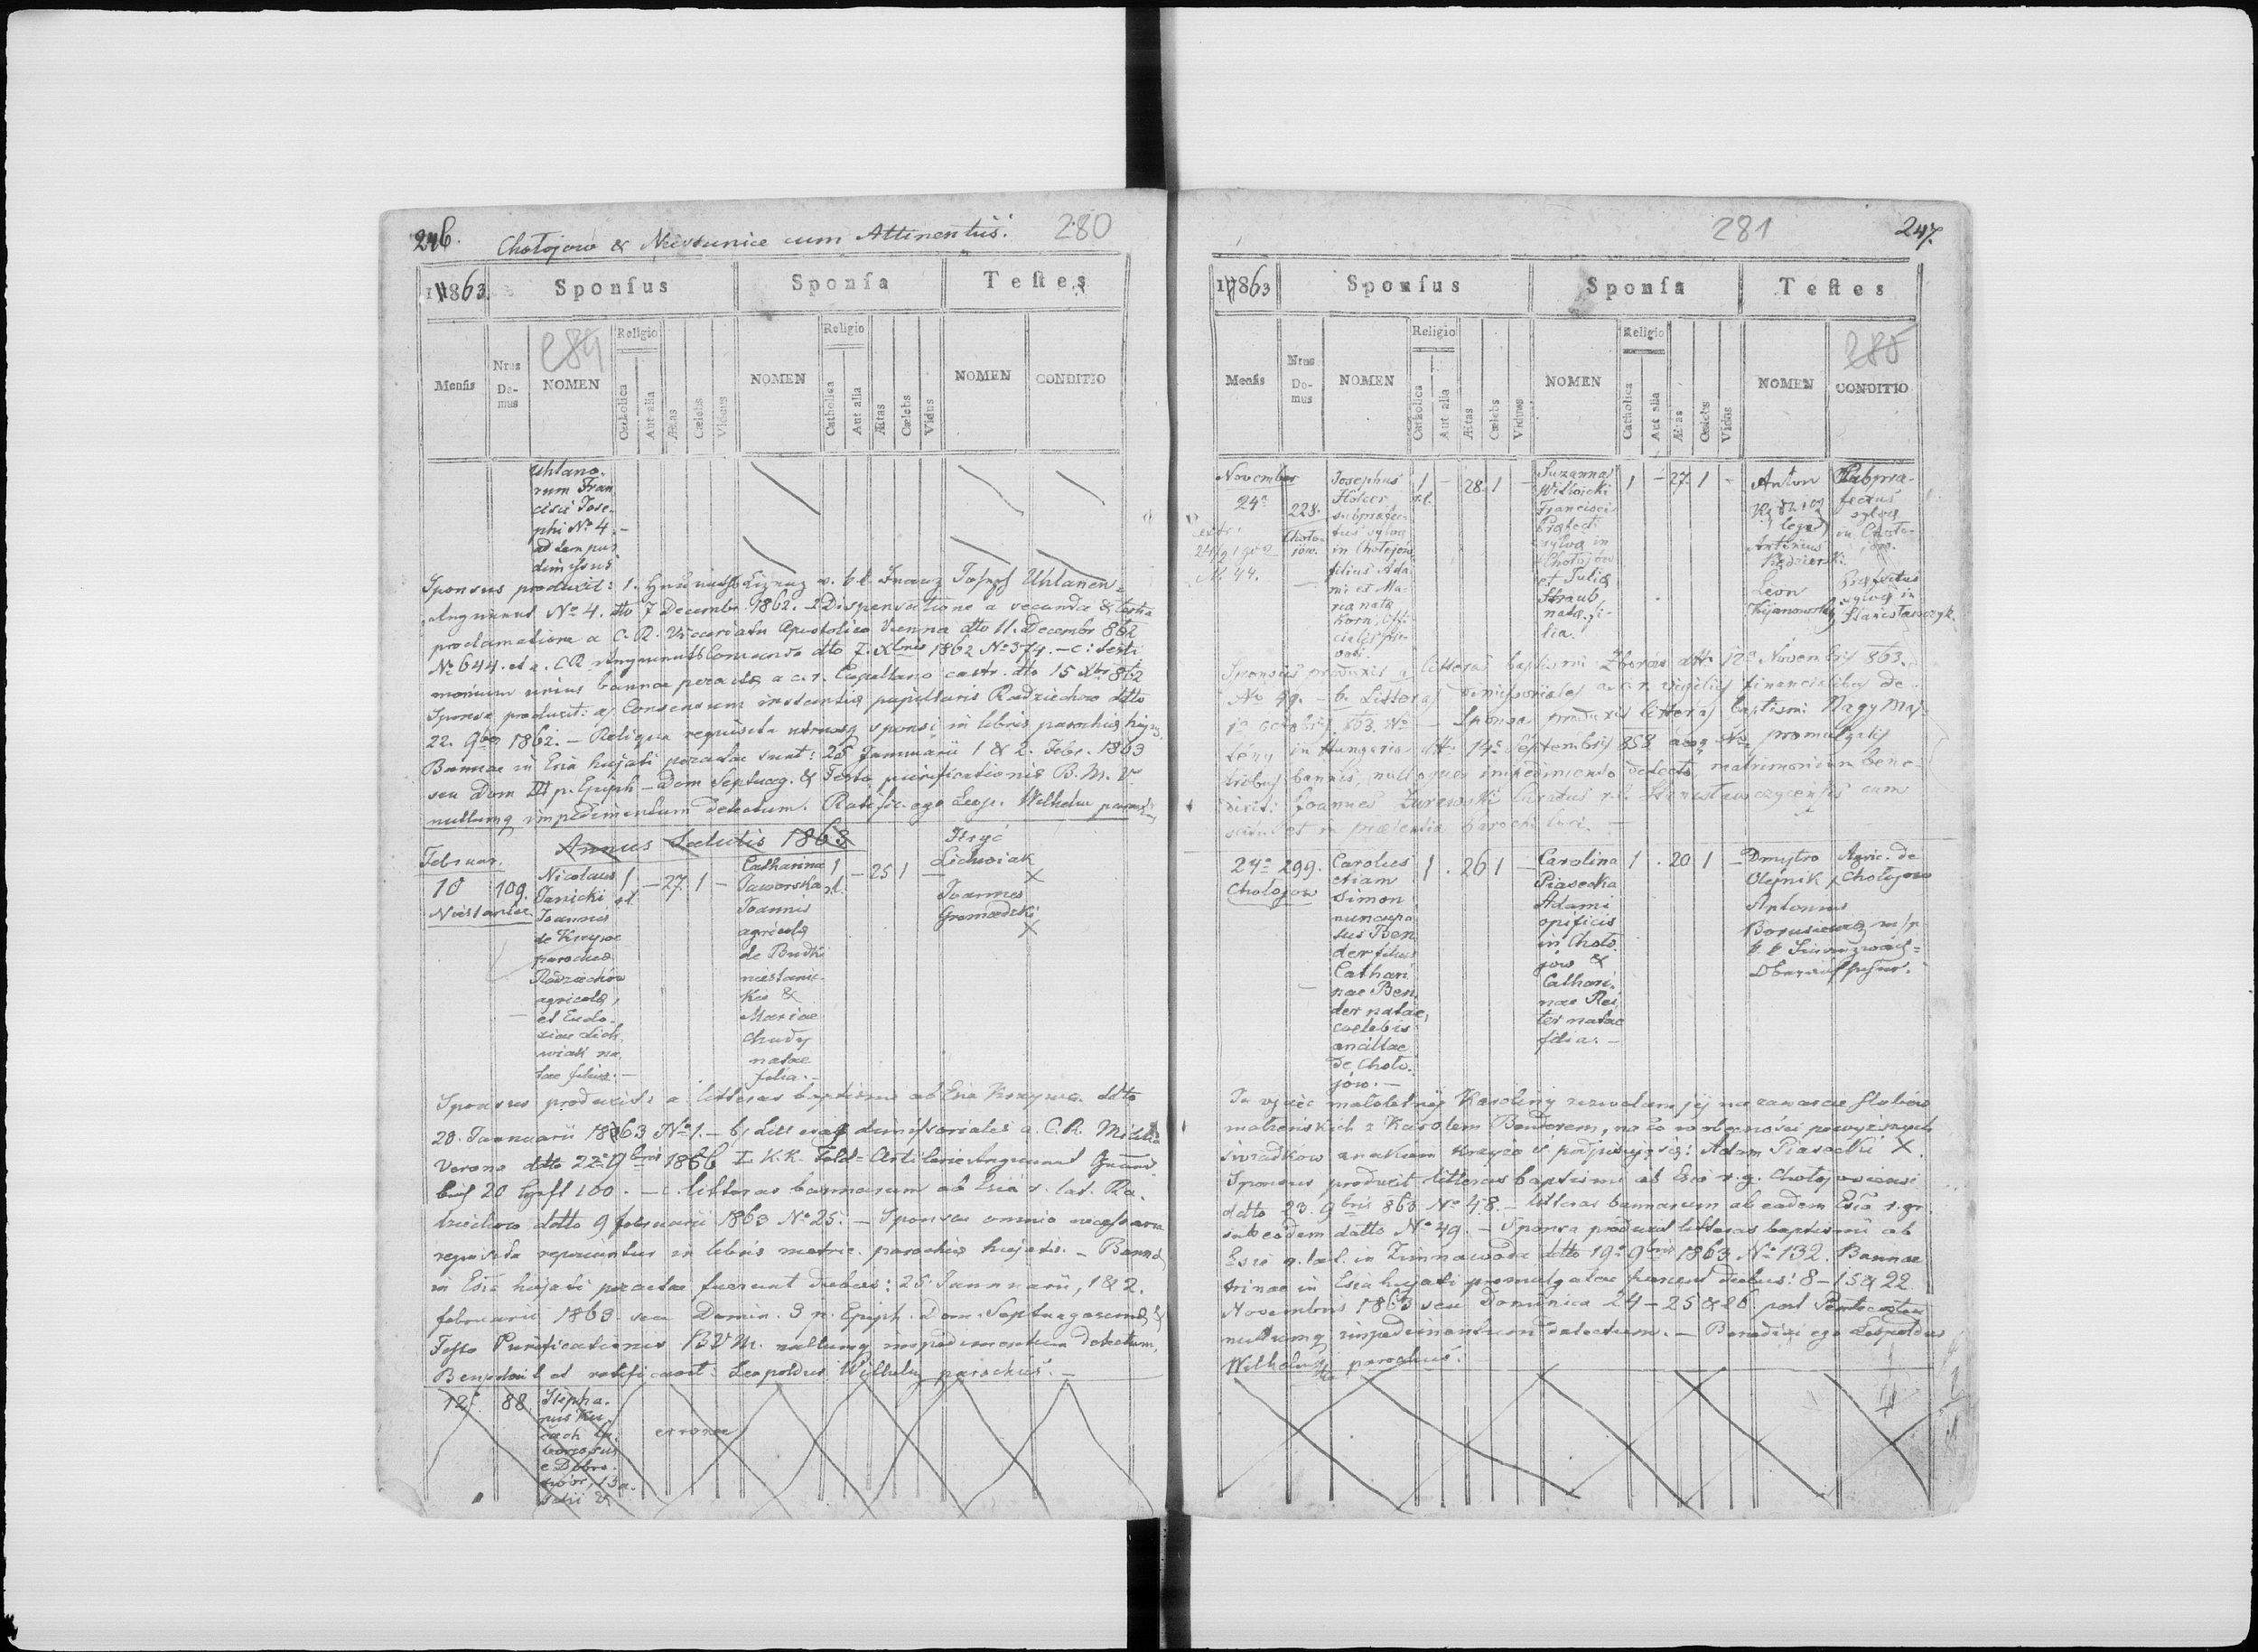 246.
Chotojow & Niestanice cum Attinentiis.
280
1863
Sponsus
Sponsa
Testes
Mensis
Nrus Domus
284
NOMEN
Religio
Catholica
Aut alia
Ætas
Cælebs
Viduus
NOMEN
Religio
Catholica
Aut alia
Ætas
Cælebs
Vidua
NOMEN
CONDITIO
Uhlano-
rum Fran
cisci Jose-
phi No 4.-
ad tempus
dimissus
Sponsus produxit: 1.
Franz Joseph Uhlanen-
No 4. dto 7 Decembr. 1862. - 2 Dispensatione a secunda & tertia
proclamatione a C. R. Vicariatu Apostolico Vienna dto 11. Decembr 862
No 644. et a. CR
dto 7. Xbris 1862 No 374. - c: testi
monium unius bannae peractae a c. r. Capellano castr. dto 15 Xbr 862
Sponsa produxit: a) Consensum instantiae pupillaris Radziechow ddto
22. 9bris 1862. - Reliqua requisita utriusq sponsi in libris parochiae hujus.
Bannae in Ecia hujati peractae sunt: 25 Januarii 1 & 2. Febr. 1863
seu Dom III p. Epiph - Dom Septuag. & Festo purificationis B. M. V
nullumq impedimentum detectum. Ratific. ego Leop. Wilhelm parochus
Annus Salutis 1863
Februar.
10
109.
Niestanice
Nicolaus
Janicki
Joannis
de Krzywe
parochiae
Radziechów
agricolae,
et Eudo-
xiae Lich
wiak na
tae filius. -
1
r.l.
-
27.
1
-
Catharina
Jaworska
Joannis
agricolae
de Budki
niestanic-
kie &
Mariae
Chudy
natae
filia. -
1
r.l.
-
25
1
-
Hryć
Lichwiak
X
Joannes
Gromadzki
X
Sponsus produxit: a litteras baptismi ab Ecia Krzywe. ddto
28. Januarii 1863 No 1. - b) Litteras dimissoriales a. C. R. Militia
Verona ddto 22 9bris 1866
K. K. Feld = Artilerie
20
100. - c litteras bannarum ab Ecia r. lat. Ra-
dziechow ddtto 9 februarii 1863 No 25. - Sponsae omnia necessaria
requisita reperiuntur in libris metric. parochiae hujatis. - Bannae
in Ecia hujati peractae fuerunt diebus: 25 Januarii, 1 & 2.
februarii 1863 seu Domin. 3 p. Epiph. Dom. Septuagesima &
Festo Purificationis BVM. nullumq impedimentum detectum.
Benedixit et ratificavit: Leopoldus Wilhelm parochus. -
12
88
Stepha-
nus
e Dobro-
erronee
281
247.
1863
Sponsus
Sponsa
Testes
Mensis
Nrus Domus
NOMEN
Religio
Catholica
Aut alia
Ætas
Cælebs
Viduus
NOMEN
Religio
Catholica
Aut alia
Ætas
Cælebs
Vidua
NOMEN
285
CONDITIO
November
24a
228.
Choto-
jow.
No 44.
Josephus
Holzer
subprefec-
tus sylvae
in Chotojów
filius Ada-
mi et Ma-
ria nata
Kora, offi-
cialis pri-
vati.
1
r.l.
-
28
1
-
Suzanna
Witwicki
Francisci
Prefecti
sylvae in
Chotojów
et Julia
Straub
natae fi-
lia.
1
-
27.
1
-
Anton
lege
Antonius
Kędzierski
Leon
Kijanowski
Subprae-
fectus
sylvae
in Choto-
jow.
Prefectus
sylvae in
Stanisławczyk.
Sponsus produxit a, litteras baptismi Zborów ddto 12a Novembris 863.
No 49. - b. Litteras dimissoriales a c. r. vigiliis financialibus de
1a octobris 863. No - Sponsa produxit litteras baptismi Nagy Maj-
tény in Hungaria ddto 14a Septembris 858.
promulgatis
tribus bannis, nulloque impedimento detecto, matrimonium bene-
dixit: Joannes Żurewski Curatus r. l. Stanisławczycensis cum
scitu et in praesentia parochi loci. -
24a
299.
Chotojow
Carolus
etiam
Simon
nuncupa
tus Ben
der filius
Cathari
nae Ben
der natae,
coelebis
ancillae
de Choto
jów. -
1
.
26
1
-
Carolina
Piasecka
Adami
opificis
in Choto
jów &
Cathari-
nae Rei
ter natae
filia. -
1
.
20
1
-
Dmytro
Olejnik X
Antonius
Borusiewicz m/p
Agric. de
Chotojow
Ja ojciec małoletniej Karoliny zezwalam jej na zawarcie ślubów
małżeńskich z Karolem Benderem, na co w obecności powyższych
świadków znakiem krzyża się podpisuję: Adam Piasecki X.
Sponsus produxit litteras baptismi ab Ecia r. g. Chotojoviensi
ddto 23. 9bris 863 No 48. - litteras bannarum ab eadem Ecia r. gr.
sub eodem datto No 49. - Sponsa produxit litteras baptismi ab
Ecia r. lat. in Zimnawoda ddto 19a 9bris 1863 No 132. Bannae
trinae in Ecia hujati promulgatae fuerunt diebus: 8 - 15 & 22.
Novembris 1863 seu Dominica 24 - 25 & 26. post Pentecosten
nullumq impedimentum detectum. - Benedixi ego Leopoldus
Wilhelm parochus.